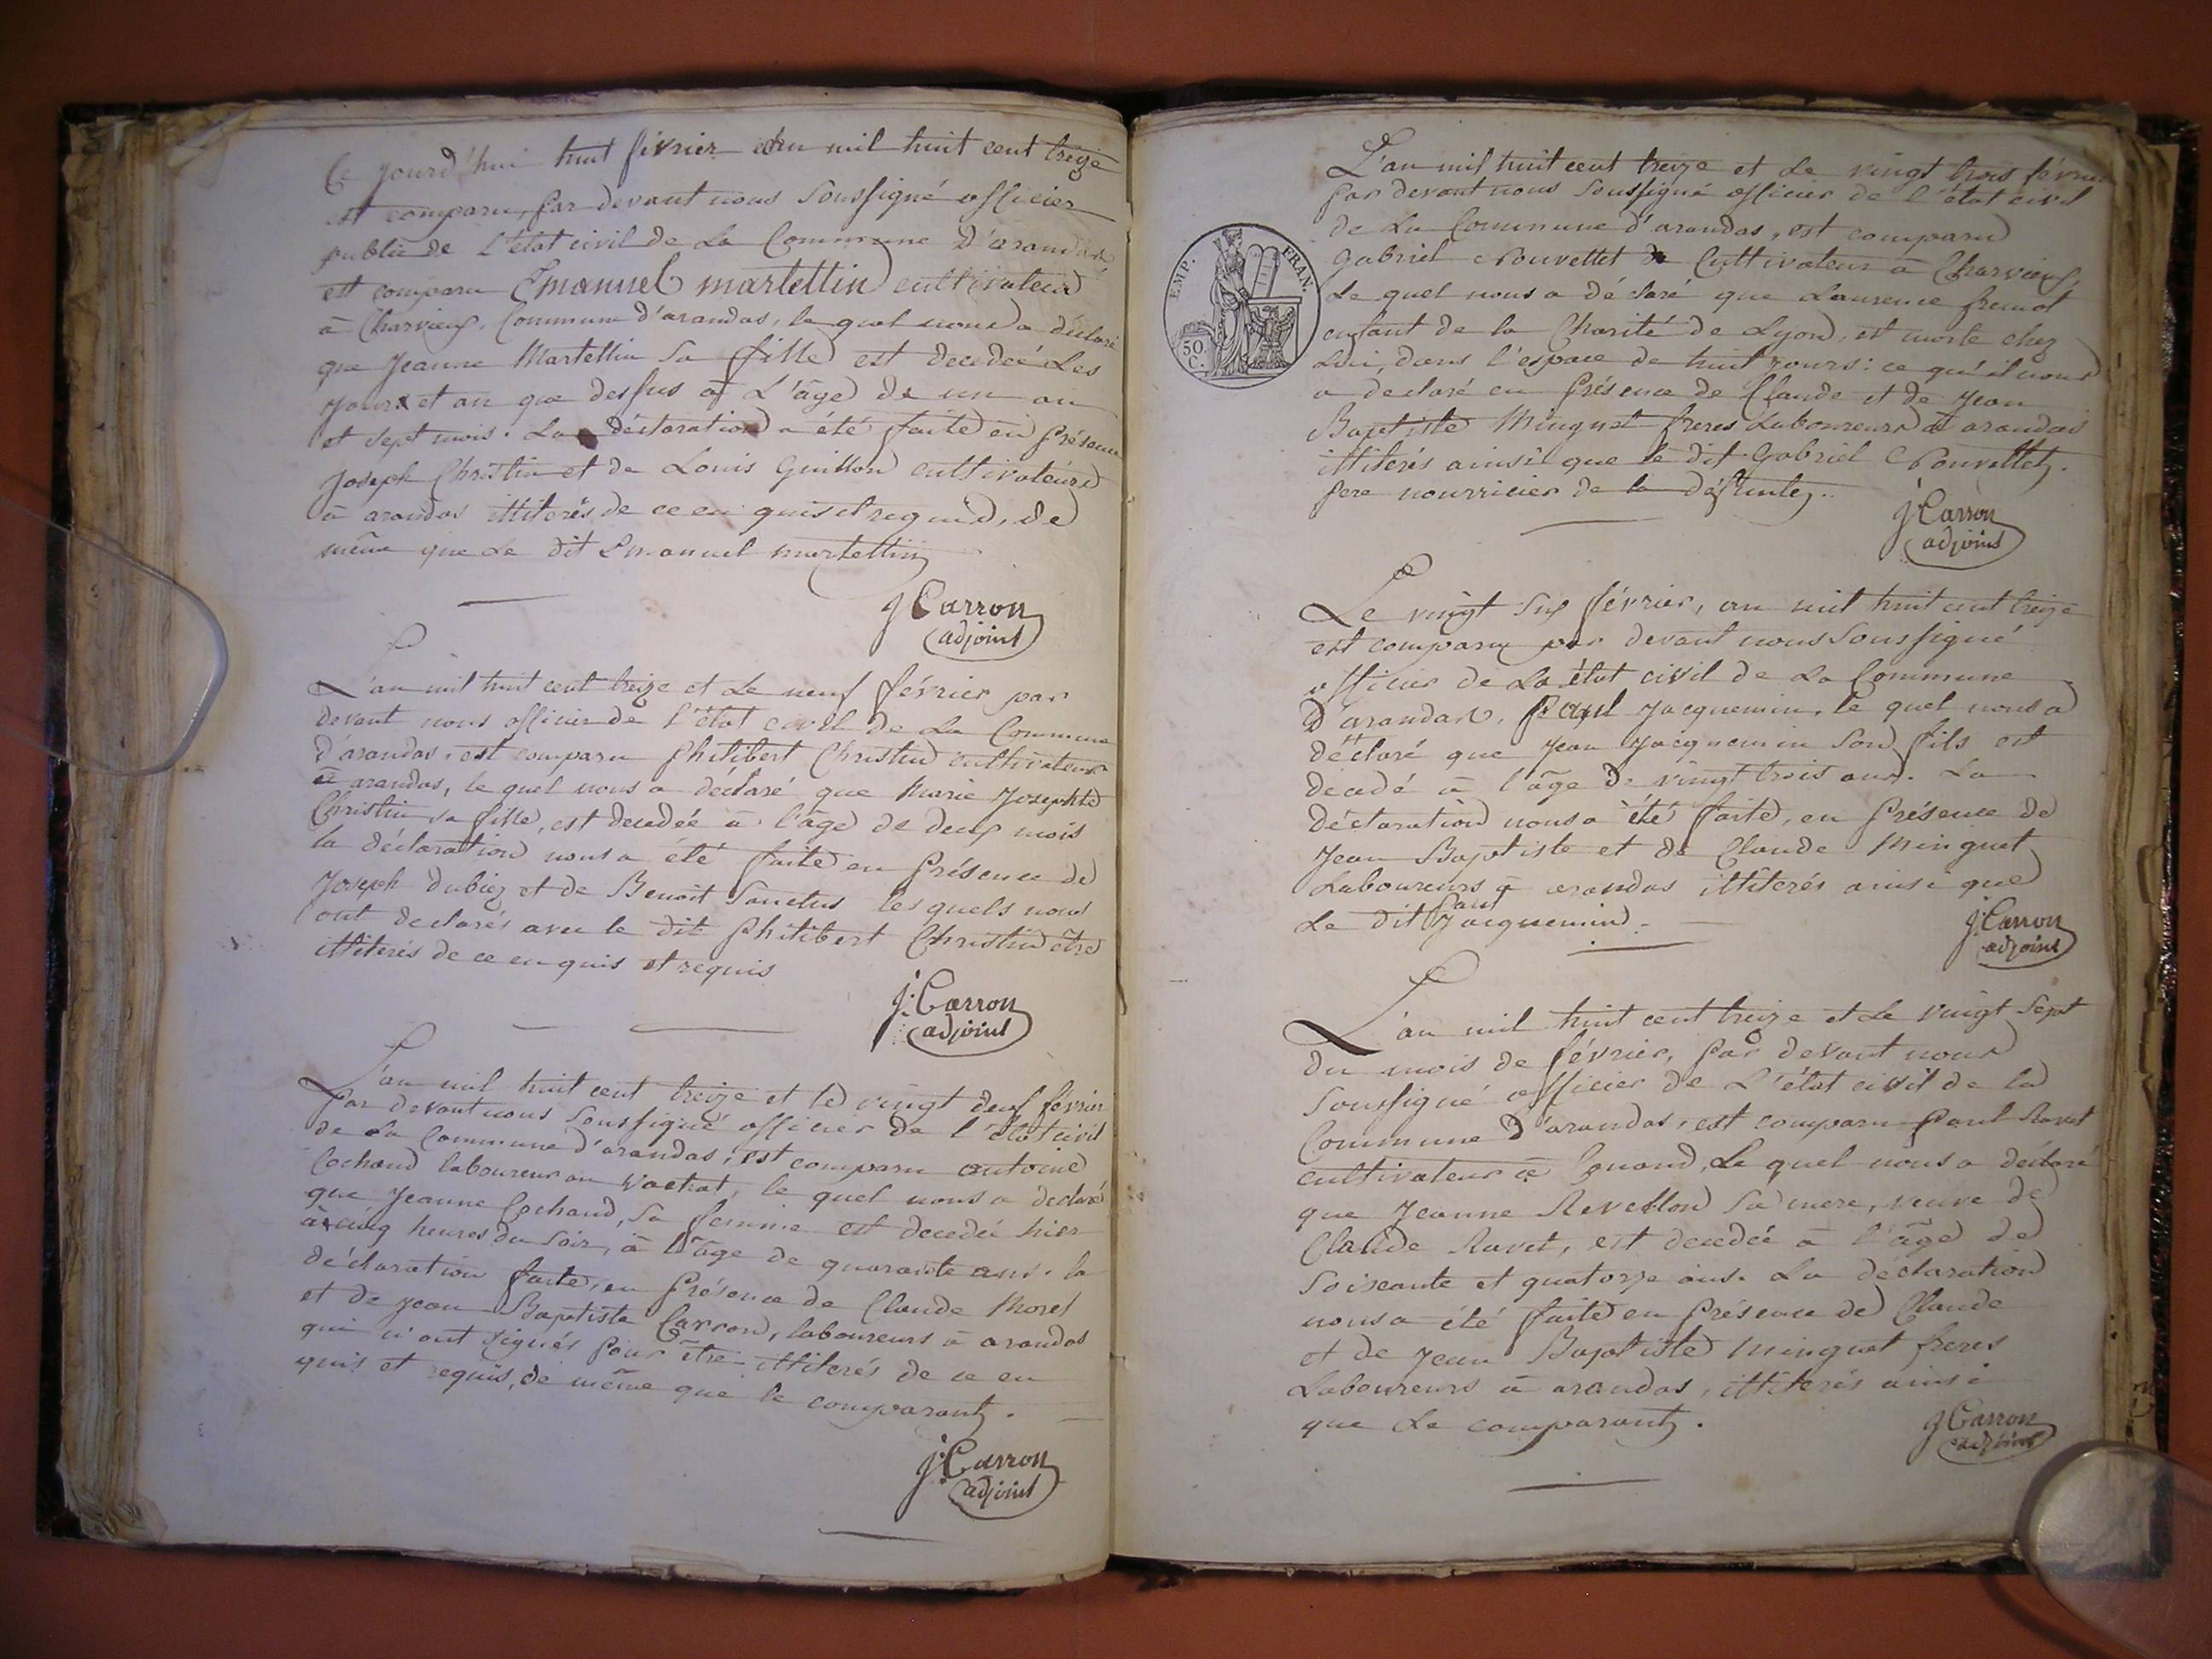 Ce jourd'hui huit février an mil huit cent treize
est comparu, par devant nous soussigné officier
public de l'état civil de la Commune D'arandas
est comparu Emanuel martellin cultivateur
à Charvieux, Commune d'arandas, le quel nous a déclaré
que Jeanne Martellin sa fille est decedeé Les
jour et an que dessus a L'âge de un an
et sept mois. La déclaration a été faite en présence
Joseph Christin et de Louis Guillon cultivateurs
à arandas illiterés de ce en quis et requis, de
même que Le dit Emanuel martellin
J Carron
adjoint
L'an mil huit cent treize et Le neuf février par
devant nous officier de l'état civil de La Commune
d'arandas, est comparu philibert Christin cultivateur
à arandas, le quel nous a déclaré que Marie Josephte
Christin sa fille, est decedéé à l'âge de deux mois
la déclaration nous a été faite en présence de
Joseph dubiez et de Benoit Sanctus les quels nous
ont declarés avec le dit philibert Christin être
illiterés de ce en quis et requis
J. Carron
adjoint
L'an mil huit cent treize et le vingt deux février
par devant nous soussigné officier de l'état civil
de La Commune d'arandas, est comparu antoine
Cochand laboureur au Vachat, le quel nous a declaré
que Jeanne Cochand, sa femme est decedée hier
à cinq heures du soir, à l'âge de quarante ans. la
déclaration faite, en présence de Claude Morel
et de Jean Baptiste Carron, laboureurs à arandas
qui n'ont signés pour être illiterés de ce en
quis et requis, de même que le comparant.
J. Carron
adjoint
EMP. FRAN.
50 C.
L'an mil huit cent treize et Le vingt trois février
par devant nous soussigné officier de l'état civil
de La Commune d'arandas, est comparu
Gabriel Pouvellet Cultivateur à Charvieux,
Le quel nous a déclaré que Laurence fremot
enfant de la Charité de Lyon, et morte chez
Lui, dans l'espace de huit jours: ce qu'il nous
a declaré en présence de Claude et de Jean
Baptiste Minguet freres Laboureurs à arandas
illiterés ainsi que le dit Gabriel Pouvellet.
pere nourricier de la défunte..
J. Carron
adjoint
Le vingt six février, an mil huit cent treize
est comparu par devant nous soussigné
officier de La état civil de La Commune
D'arandas, paul Jacquemin, le quel nous a
déclaré que Jean Jacquemin son fils est
decedé à l'âge de vingt trois ans. La
déclaration nous a été faite, en présence de
Jean Baptiste et de Claude Minguet
Laboureurs à arandas illiterés ainsi que
Le dit paul Jacquemin.
J. Carron
adjoint
L'an mil huit cent treize et Le vingt sept
du mois de février, par devant nous
soussigné officier de L'état civil de la
Commune D'arandas, est comparu paul Ravet
cultivateur à Conand, Le quel nous a déclaré
que Jeanne Revellon sa mere, veuve de
Claude Ravet, est decedéé à l'âge de
soiscante et quatorze ans. La déclaration
nous a été faite en présence de Claude
et de Jean Baptiste Minguet freres
Laboureurs à arandas, illiterés ainsi
que Le comparant.
J Carron
adjoint